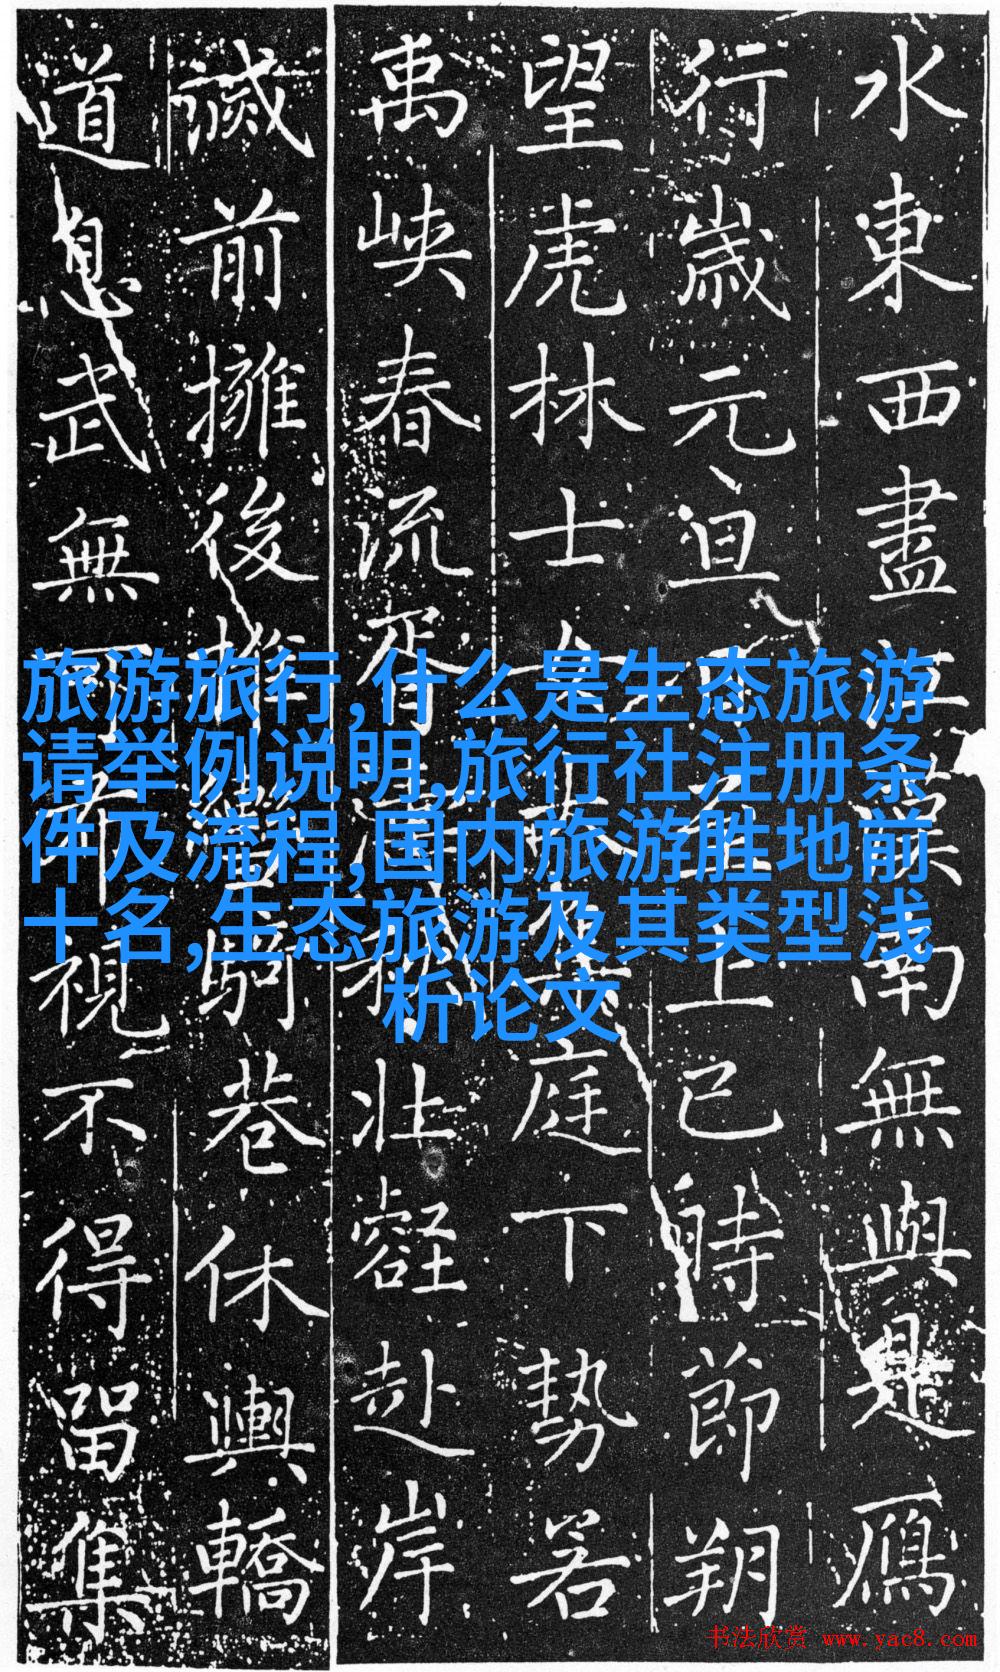 水東西盡漢南無與是鴈
行歳元旦上巳時節朔
望虎林士庭下勢若
禹峽春流胥濤秋壯壑赴岸
滅前擁後駒巷休輿轎
道息武無視不得留集
旅游旅行,什么是生态旅游
请举例说明,旅行社注册条
件及流程,国内旅游胜地前
十名,生态旅游及其类型浅
析论文
书法欣赏 www.yac8.com